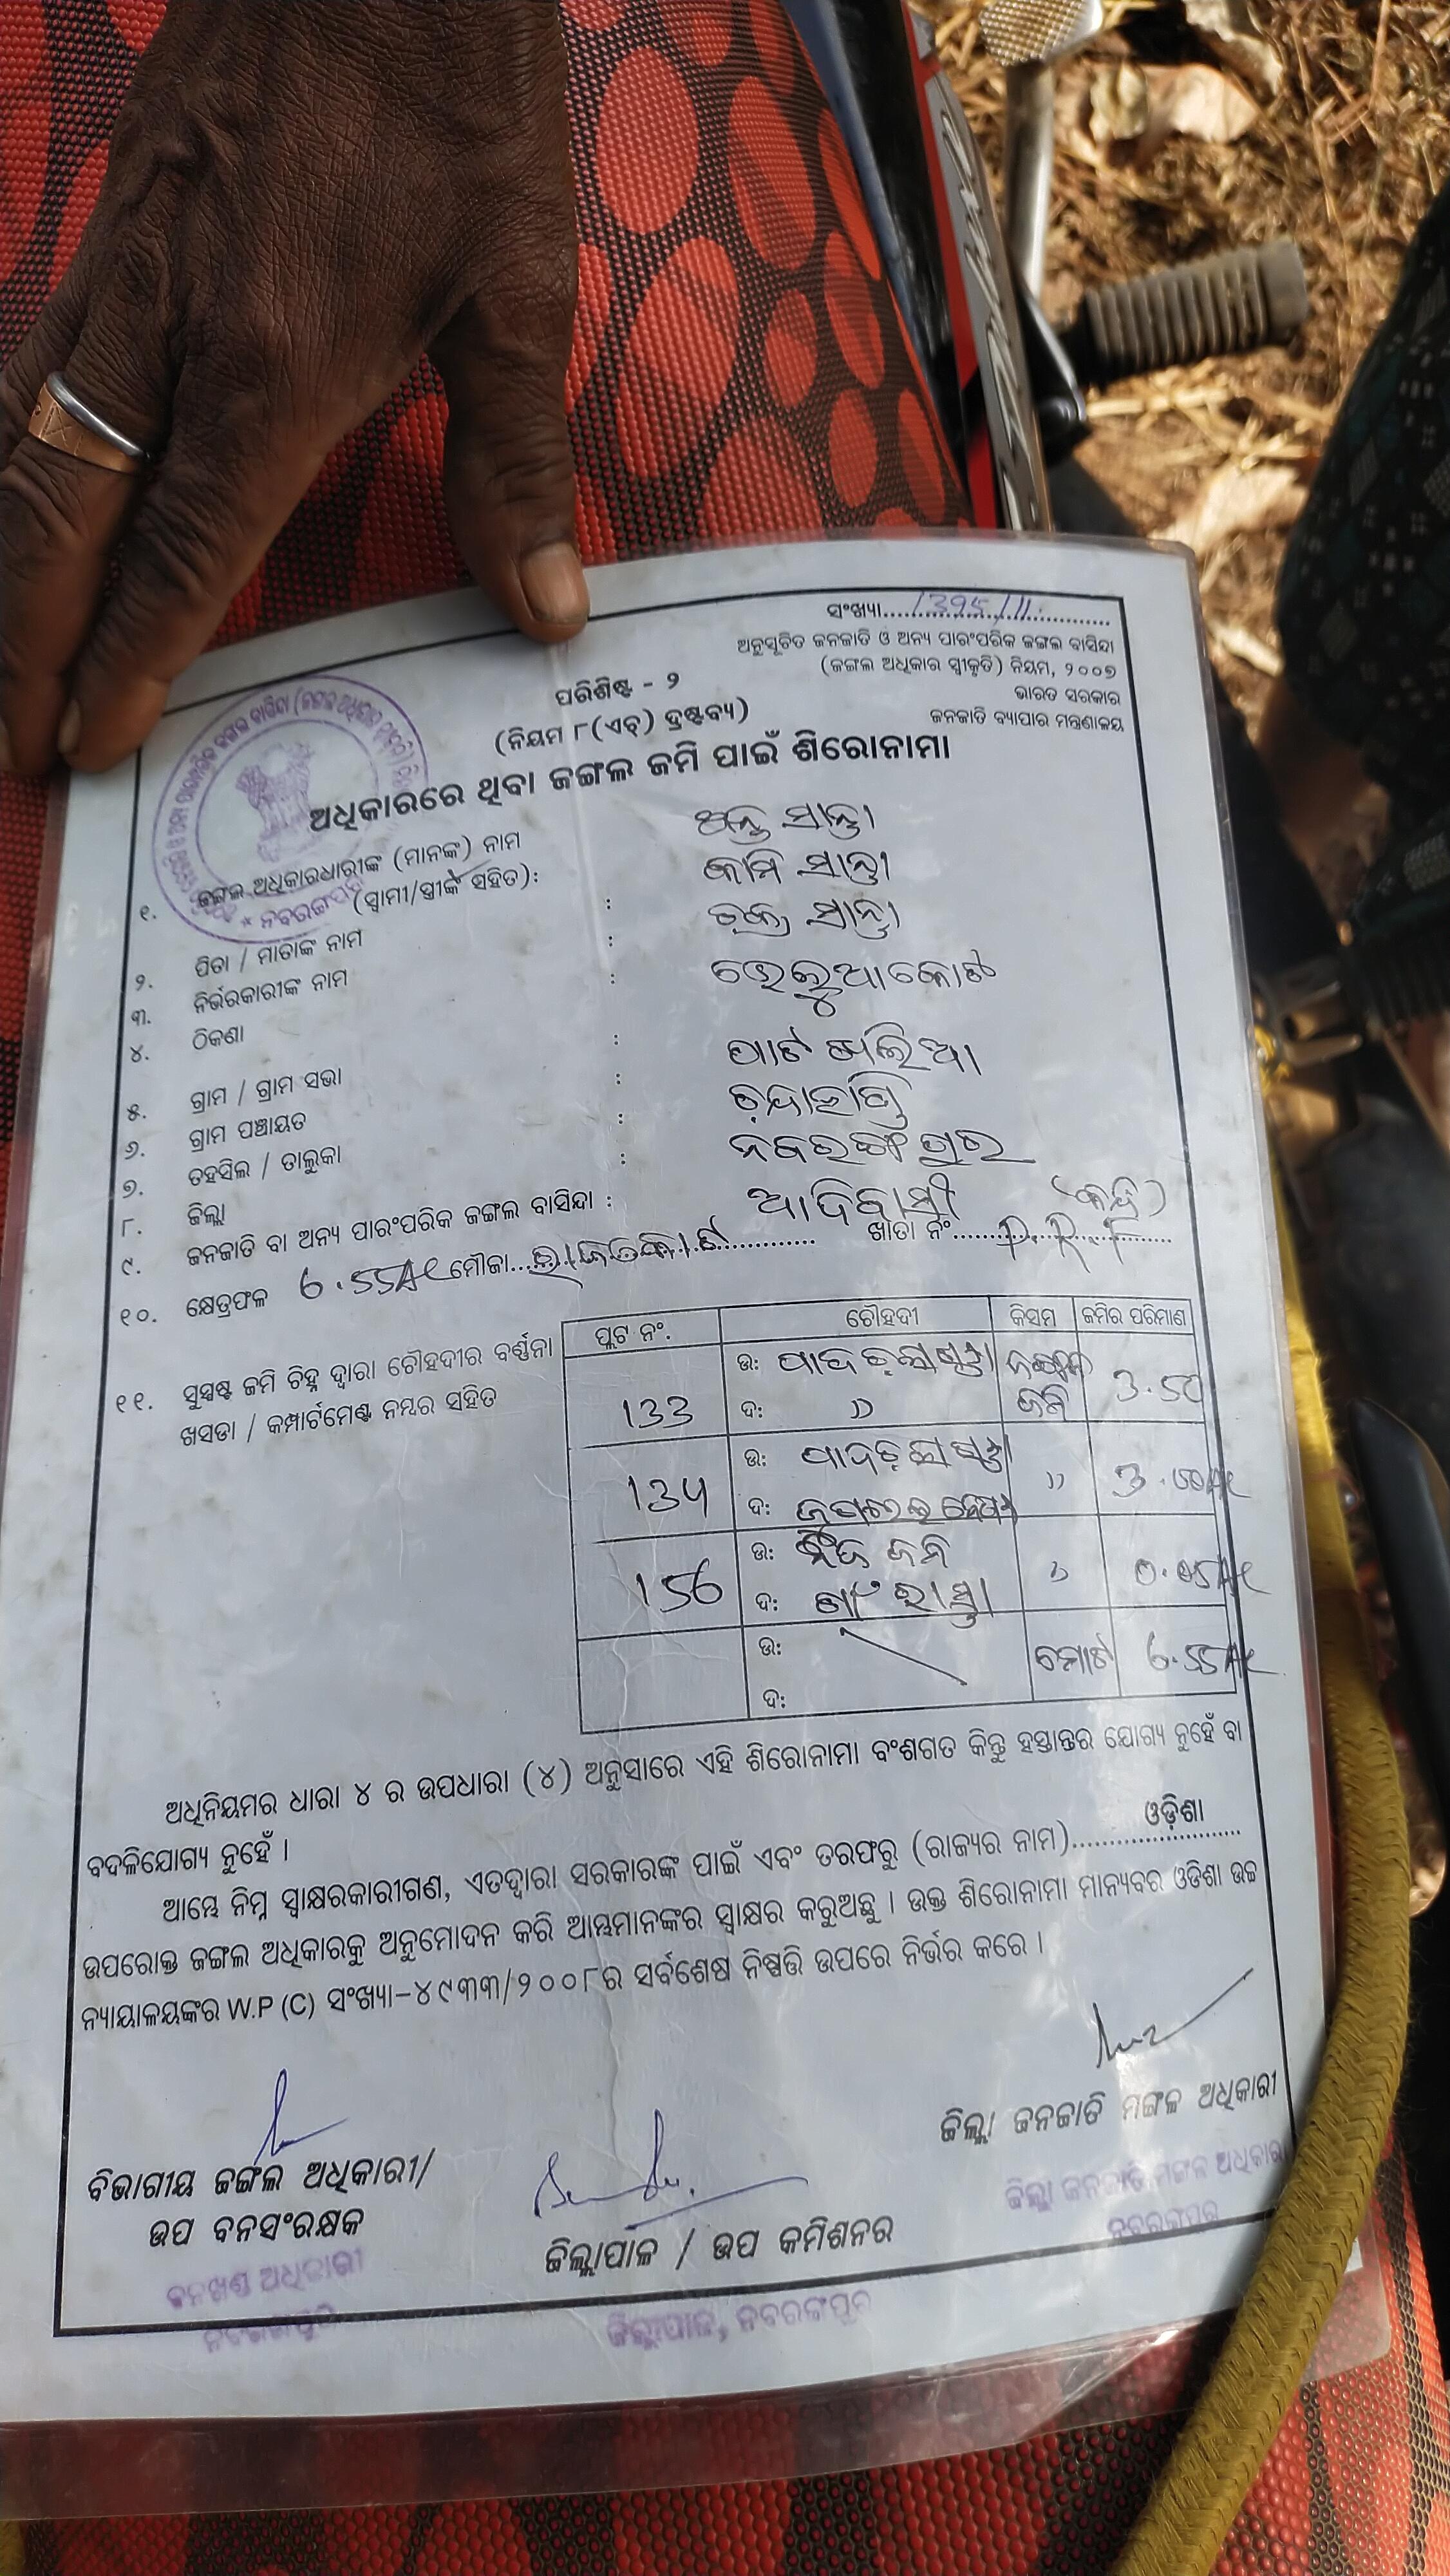 ସଂଖ୍ୟା....1395/11.
ଅନୁସୂଚିତ ଜନଜାତି ଓ ଅନ୍ୟ ପାରଂପରିକ ଜଙ୍ଗଲ ବାସିନ୍ଦା
(ଜଙ୍ଗଲ ଅଧିକାର ସ୍ୱୀକୃତି) ନିୟମ, ୨୦୦୭
ଭାରତ ସରକାର
ଜନଜାତି ବ୍ୟାପାର ମନ୍ତ୍ରଣାଳୟ
ପରିଶିଷ୍ଟ - ୨
(ନିୟମ ୮(ଏଚ୍) ଦ୍ରଷ୍ଟବ୍ୟ)
ଅଧିକାରରେ ଥିବା ଜଙ୍ଗଲ ଜମି ପାଇଁ ଶିରୋନାମା
୧. ଜଙ୍ଗଲ ଅଧିକାରଧାରୀଙ୍କ (ମାନଙ୍କ) ନାମ
(ସ୍ୱାମୀ/ସ୍ତ୍ରୀଙ୍କ ସହିତ):
ସାନ୍ତା
୨. ପିତା / ମାତାଙ୍କ ନାମ : ସାନ୍ତା
୩. ନିର୍ଭରକାରୀଙ୍କ ନାମ : ସାନ୍ତା
୪. ଠିକଣା :
୫. ଗ୍ରାମ / ଗ୍ରାମ ସଭା :
୬. ଗ୍ରାମ ପଞ୍ଚାୟତ :
୭. ତହସିଲ / ତାଲୁକା :
୮. ଜିଲ୍ଲା : ନବରଙ୍ଗପୁର
୯. ଜନଜାତି ବା ଅନ୍ୟ ପାରଂପରିକ ଜଙ୍ଗଲ ବାସିନ୍ଦା : ଆଦିବାସୀ
୧୦. କ୍ଷେତ୍ରଫଳ 6.55Ac ମୌଜା............ ଖାତା ନଂ....P.R.F
୧୧. ସୁସ୍ପଷ୍ଟ ଜମି ଚିହ୍ନ ଦ୍ୱାରା ଚୌହଦୀର ବର୍ଣ୍ଣନା
ଖସଡା / କମ୍ପାର୍ଟମେଣ୍ଟ ନମ୍ବର ସହିତ
ପ୍ଲଟ ନଂ. ଚୌହଦୀ କିସମ ଜମିର ପରିମାଣ
133 ଉ: ଜଙ୍ଗଲ ଜମି 3.50
ଦ: "
134 ଉ: " 3.00Ac
ଦ:
156 ଉ: ନିଜ ଜମି " 0.05Ac
ଦ: ଗାଁ ରାସ୍ତା
ଉ: ମୋଟ 6.55Ac
ଦ:
ଅଧିନିୟମର ଧାରା ୪ ର ଉପଧାରା (୪) ଅନୁସାରେ ଏହି ଶିରୋନାମା ବଂଶଗତ କିନ୍ତୁ ହସ୍ତାନ୍ତର ଯୋଗ୍ୟ ନୁହେଁ ବା
ବଦଳିଯୋଗ୍ୟ ନୁହେଁ ।
ଆମ୍ଭେ ନିମ୍ନ ସ୍ୱାକ୍ଷରକାରୀଗଣ, ଏତଦ୍ୱାରା ସରକାରଙ୍କ ପାଇଁ ଏବଂ ତରଫରୁ (ରାଜ୍ୟର ନାମ)....ଓଡ଼ିଶା....
ଉପରୋକ୍ତ ଜଙ୍ଗଲ ଅଧିକାରକୁ ଅନୁମୋଦନ କରି ଆମ୍ଭମାନଙ୍କର ସ୍ୱାକ୍ଷର କରୁଅଛୁ । ଉକ୍ତ ଶିରୋନାମା ମାନ୍ୟବର ଓଡିଶା ଉଚ୍ଚ
ନ୍ୟାୟାଳୟଙ୍କର W.P (C) ସଂଖ୍ୟା-୪୯୩୩/୨୦୦୮ର ସର୍ବଶେଷ ନିଷ୍ପତ୍ତି ଉପରେ ନିର୍ଭର କରେ ।
ବିଭାଗୀୟ ଜଙ୍ଗଲ ଅଧିକାରୀ/
ଉପ ବନସଂରକ୍ଷକ
ବନଖଣ୍ଡ ଅଧିକାରୀ
ଜିଲ୍ଲାପାଳ / ଉପ କମିଶନର
ଜିଲ୍ଲାପାଳ, ନବରଙ୍ଗପୁର
ଜିଲ୍ଲା ଜନଜାତି ମଙ୍ଗଳ ଅଧିକାରୀ
ଜିଲ୍ଲା ଜନଜାତି ମଙ୍ଗଳ ଅଧିକାରୀ
ନବରଙ୍ଗପୁର